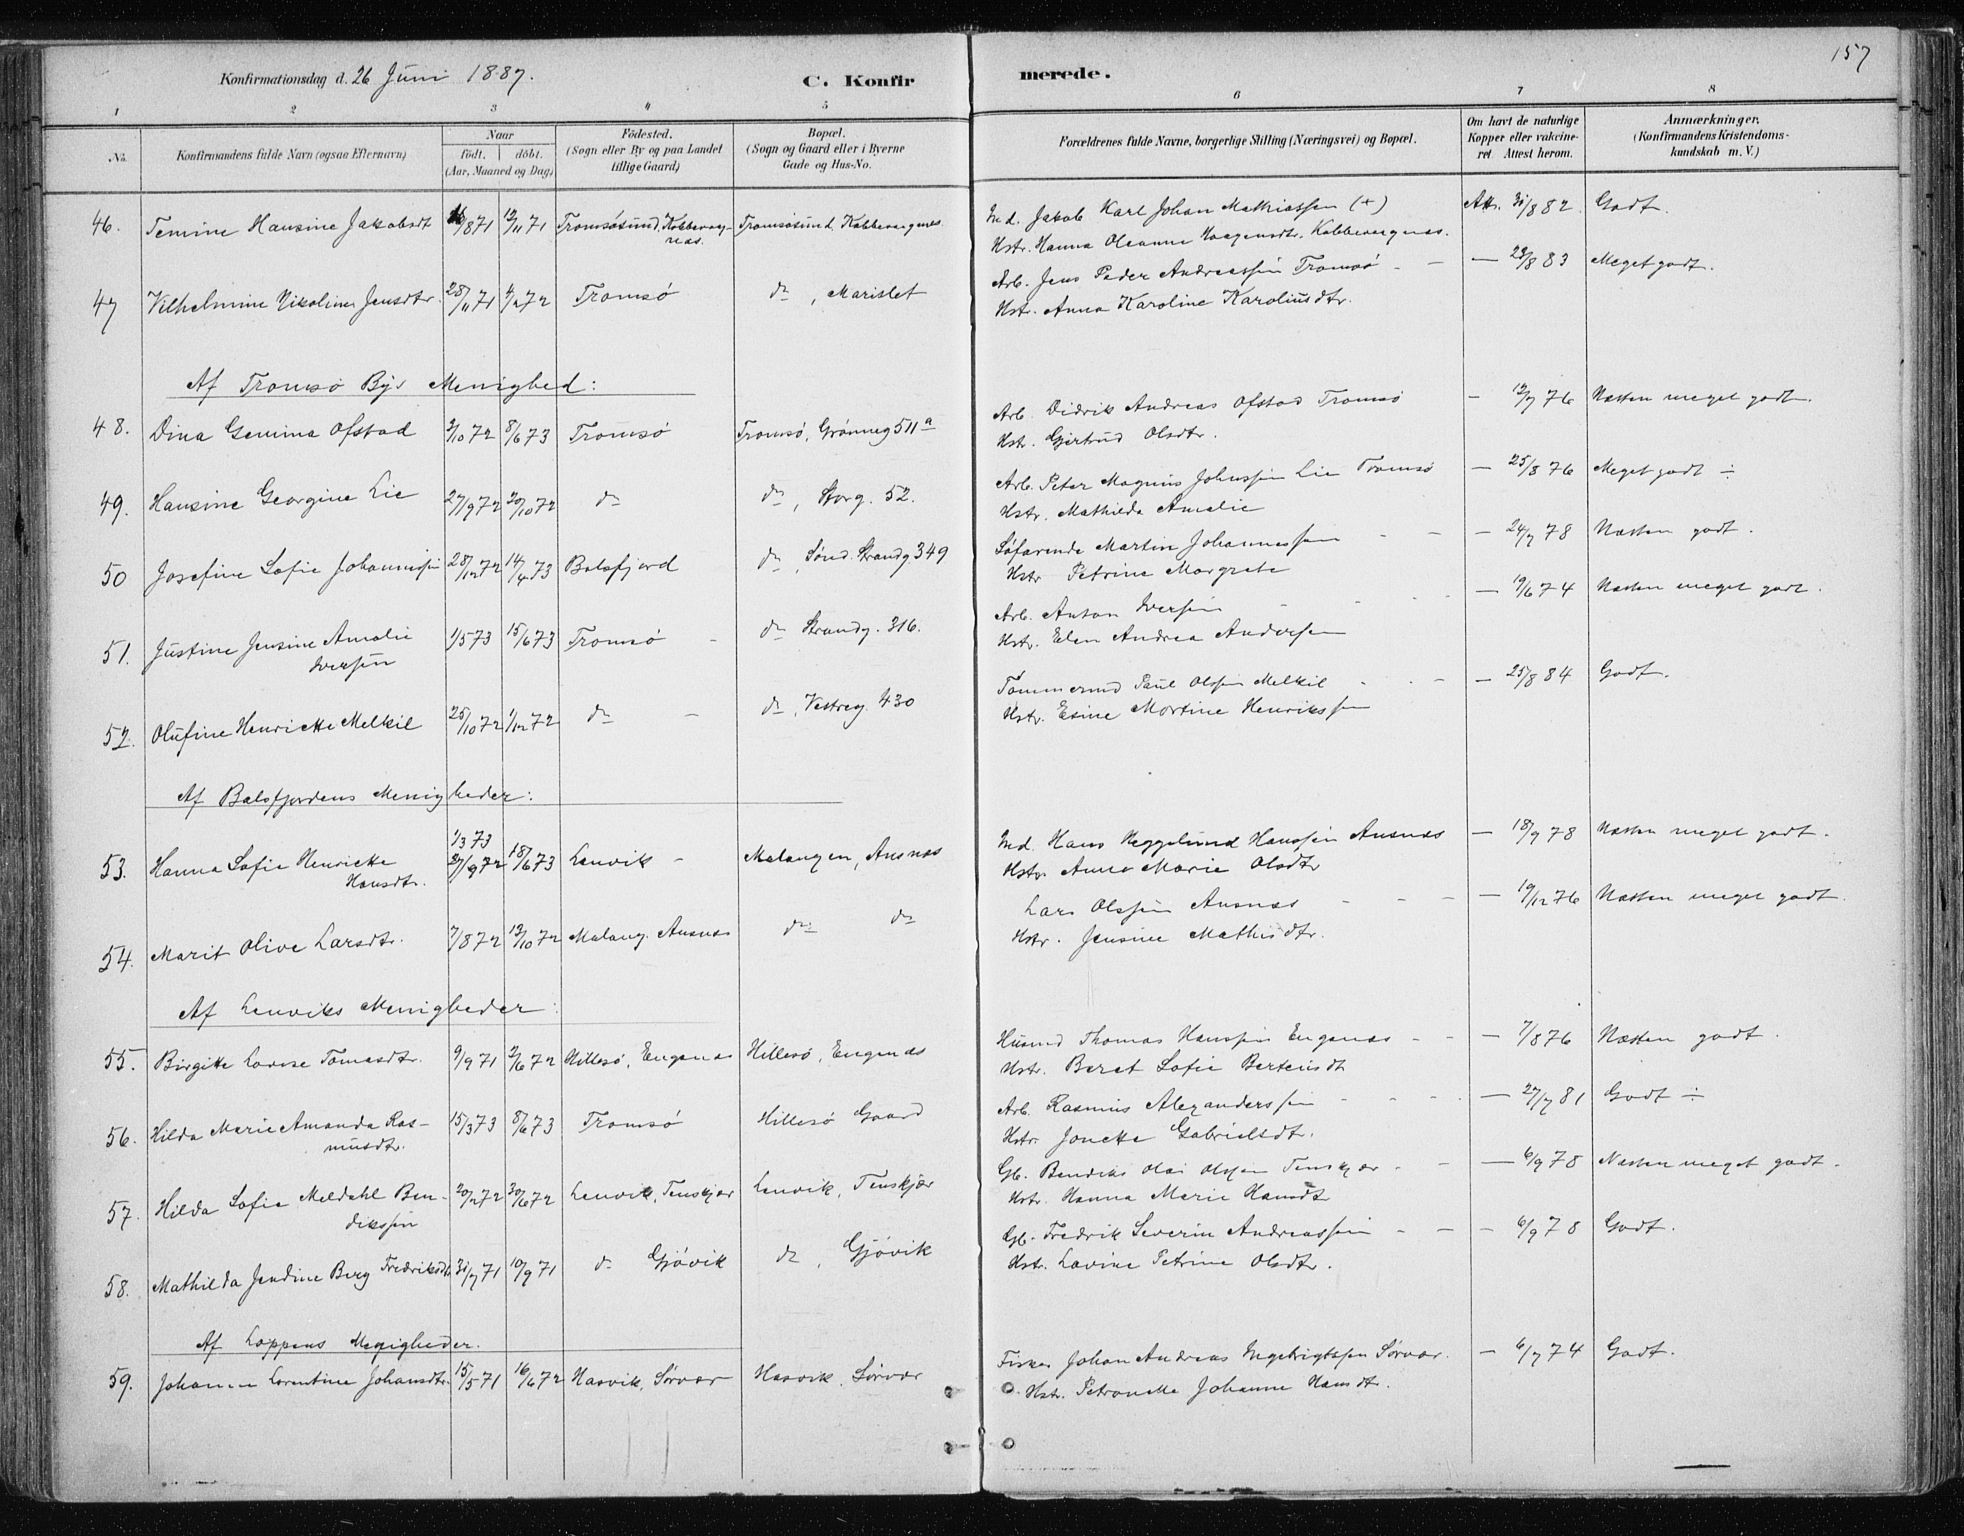 157
Konfirmationsdag d. 26 Juni 1887.
C. Konfirmerede.
1 2 3 4 5 6 7 8
No. Konfirmandens fulde Navn (ogsaa Efternavn)
Naar födt. döbt. (Aar, Maaned og Dag)
Födested. (Sogn eller By og paa Landet tillige Gaard)
Bopæl. (Sogn og Gaard eller i Byerne Gade og Hus-No.
Forældrenes fulde Navne, borgerlige Stilling (Næringsvei) og Bopæl.
Om havt de naturlige Kopper eller vakcineret. Attest herom.
Anmærkninger. (Konfirmandens Kristendomskundskab m. V.)
46. Temine Hansine Jakobsdt /871 12/11 71 Tromsösund, Kobbevagnæs. Tromsösund, Kobbevagnes. Ind. Jakob Karl Johan Mathiassen (+) Att. 31/8 82. Godt.
Hstr. Hanna Oleanna Haagensdtr. Kobbevagnæs.
47 Vilhelmine Nikoline Jensdtr. 28/11 71 4/2 72 Tromsö do, Marislet Arb. Jens Peder Andreassen Tromsö - — 23/8 83 Meget godt.
Hstr. Anna Karoline Karoliusdtr.
Af Tromsö Bys Menighed:
48. Dina Gemina Ofstad 3/10 72 8/6 73 Tromsö Tromsö, Grönneg 511a Arb. Didrik Andreas Ofstad Tromsö - 12/7 76 Næsten meget godt.
Hstr. Gjertrud Olsdtr.
49. Hansine Georgine Lie 27/9 72 20/10 72 do do, Storg. 52. Arb. Peter Magnus Johnssen Lie Tromsö — 25/8 76 Meget godt ÷
Hstr. Mathilda Amalie
50 Josefine Sofie Johannessen 28/12 72 14/4 73 Balsfjord do, Sönd. Strandg 349 Söfarende Martin Johannessen - - — 24/7 78 Næsten godt.
Hstr Petrine Margrete
51. Justine Jensine Amalie Iversen 1/5 73 15/6 73 Tromsö - do Strandg. 316. Arb. Anton Iversen - - — 19/6 74 Næsten meget godt.
Hstr. Elen Andrea Andersen
52. Olufine Henriette Melkil 25/10 72 1/12 72 do - do, Vestreg 430 Tömmermd Paul Olsen Melkil - - — 25/8 84 Godt.
Hstr. Esine Mortine Henrikssen
Af Balsfjordens Menigheder:
53. Hanna Sofie Henriette Hansdtr. 1/3 73 27/9 72 18/6 73 Lenvik - Malangen, Ansnæs Ind. Hans Heggelund Hanssen Ansnæs — 18/9 78 Næsten meget godt.
Hstr. Anne Marie Olsdtr
54. Marit Olive Larsdtr. 7/8 72 12/10 72 Malang. Ansnæs do do Lars Olssen Ansnæs - - - — 19/12 76 Næsten meget godt.
Hstr. Jensine Mathisdtr.
Af Lenviks Menigheder:
55. Birgitte Lovise Tomasdtr. 9/9 71 2/6 72 Hillesö, Engenæs Hillesö, Engenæs Husmd Thomas Hanssen Engenæs - - — 7/8 76 Næsten godt.
Hstr. Beret Sofie Bertensdt
56. Hilda Marie Amanda Rasmusdtr. 15/3 73 8/6 73 Tromsö Hillesö Gaard Arb. Rasmus Alexanderssen - - - — 27/7 81 Godt ÷
Hstr Jonette Gabrielsdtr.
57. Hilda Sofie Meldahl Bendikssen 20/2 72 30/6 72 Lenvik, Tenskjær Lenvik, Tenskjær Gb. Bendiks Olai Olssen Tenskjær - - — 6/9 78 Næsten meget godt.
Hstr. Hanna Marie Hansdt
58. Mathilda Jendine Berg Fredriksdtr 31/7 71 10/9 71 do Gjövik do, Gjövik Gb. Fredrik Severin Andreassen - - — 6/9 78 Godt.
Hstr. Lovine Petrine Olsdtr.
Af Loppens Menigheder.
59. Johanna Lorentine Johansdtr. 15/5 71 16/6 72 Hasvik, Sörvær Hasvik, Sörvær Fisker Johan Andreas Ingebrigtssen Sörvær. — 6/7 74 Godt.
Hstr. Petronelle Johanne Hansdtr.